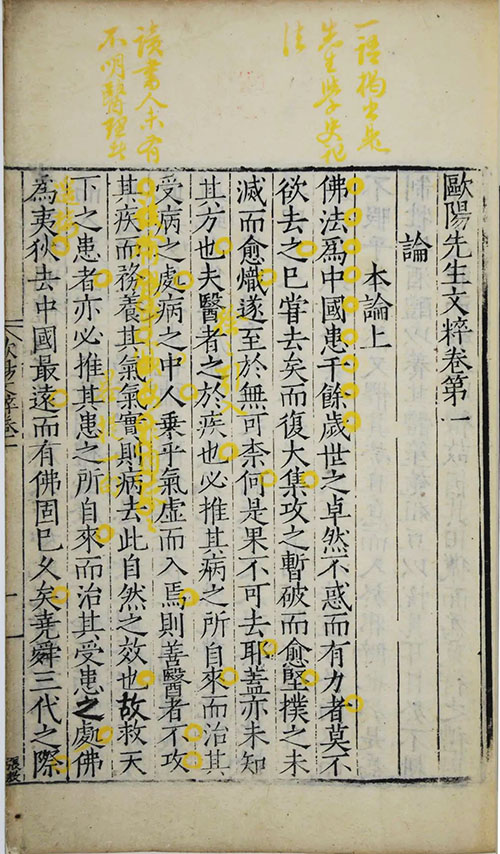 一語揭出歐
先生學史記
法
讀書人未有
不明醫理者
歐陽先生文粹卷第一
論
本論上
佛法爲中國患千餘歲世之卓然不惑而有力者莫不
欲去之已嘗去矣而復大集攻之暫破而愈堅撲之未
滅而愈熾遂至於無可柰何是果不可去耶蓋亦未知
其方也夫醫者之於疾也必推其病之所自來而治其
受病之處病之中人乗乎氣虛而入焉則善醫者不攻
其疾而務養其氣氣實則病去此自然之效也故救天
下之患者亦必推其患之所自來而治其受患之處佛
爲夷狄去中國最遠而有佛固已久矣堯舜三代之際